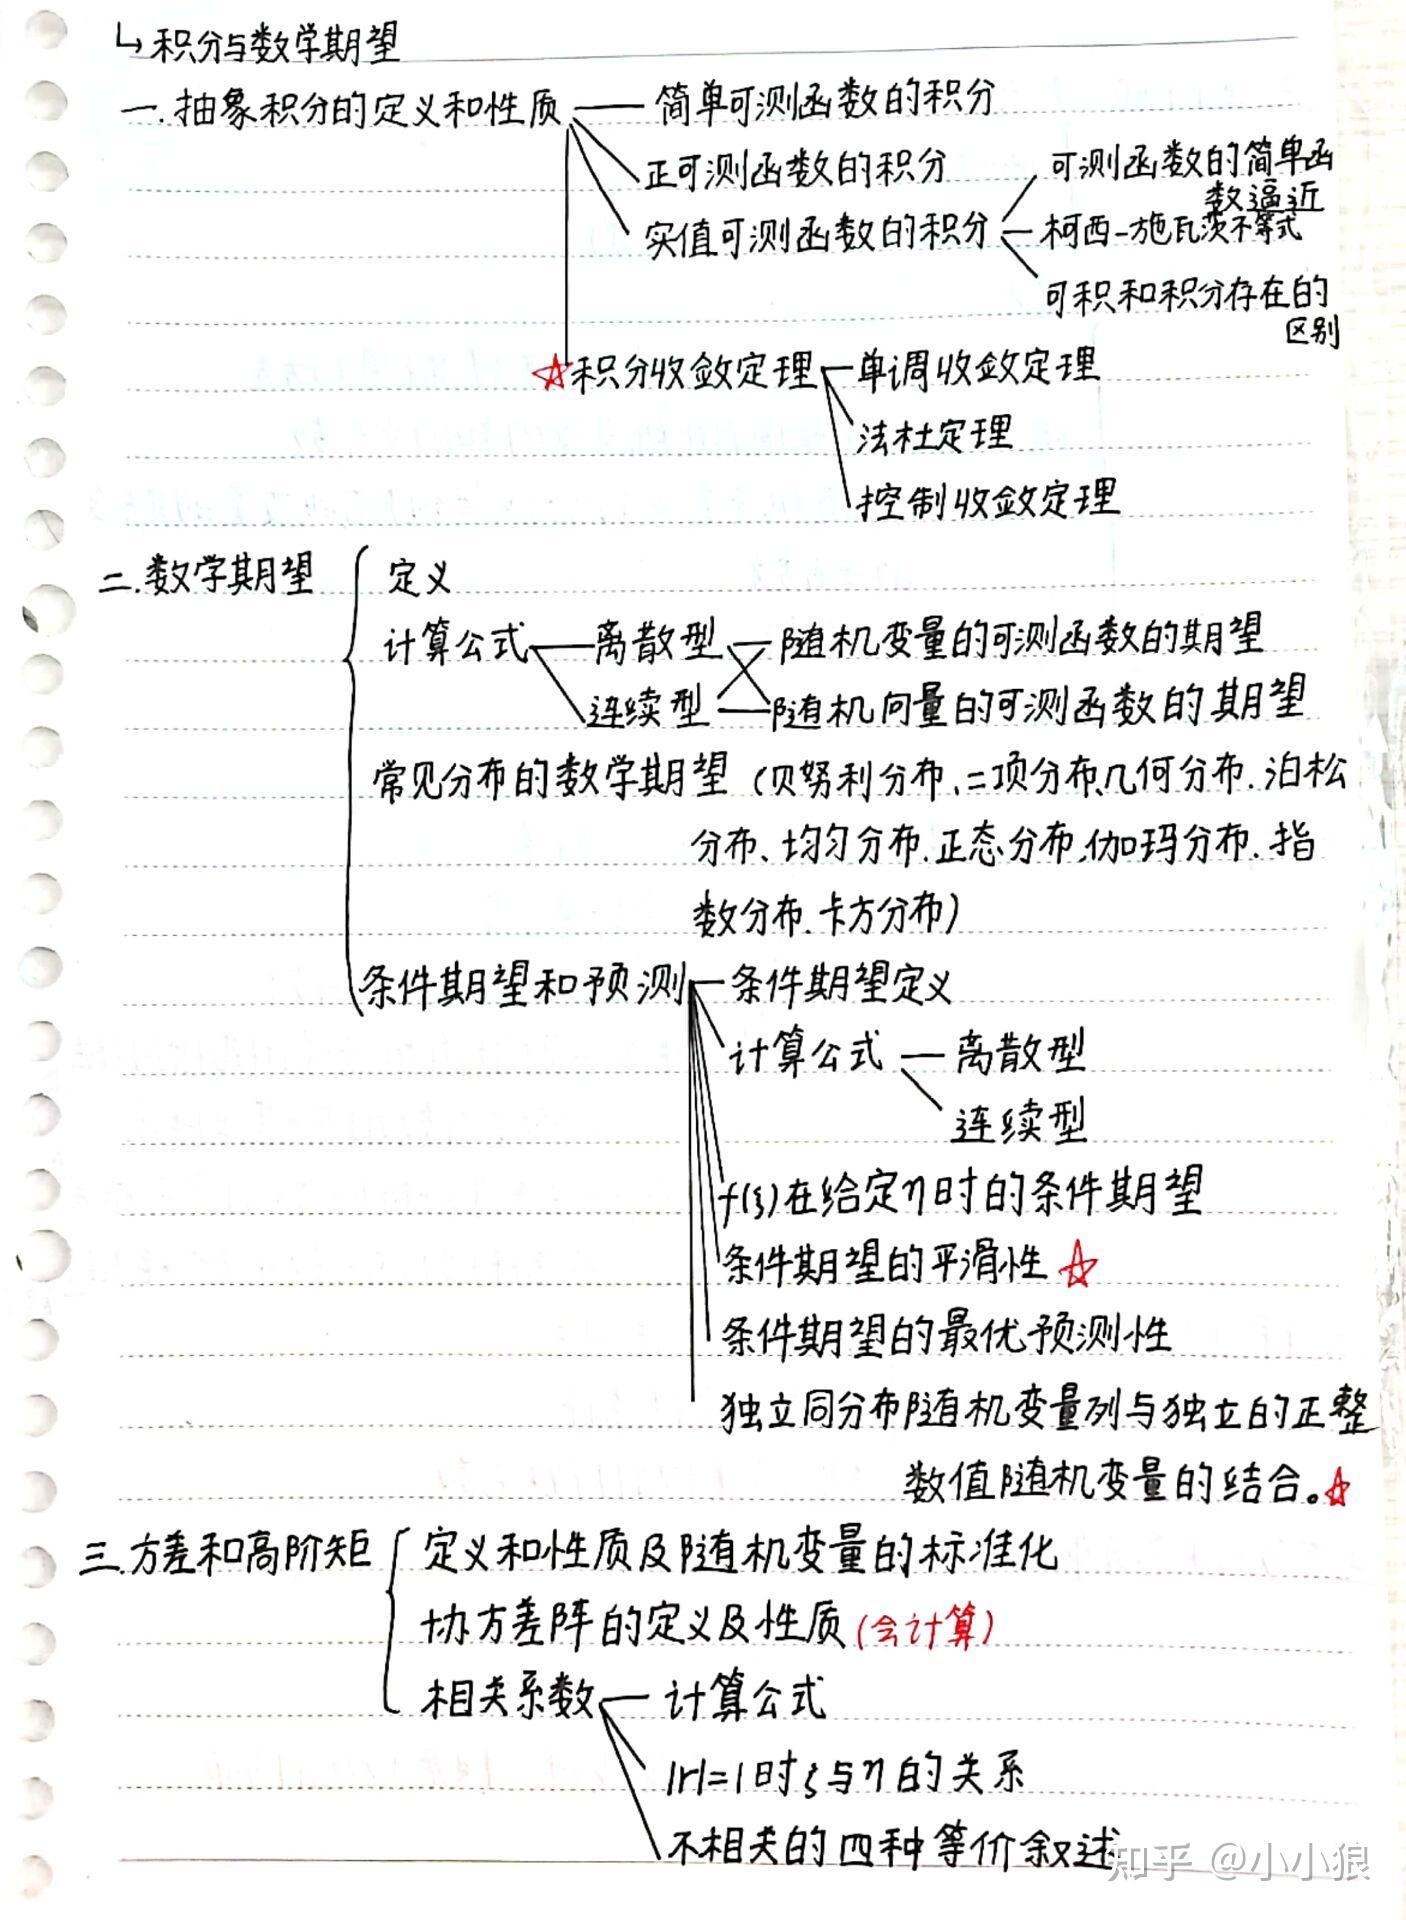 ↳积分与数学期望
一.抽象积分的定义和性质 — 简单可测函数的积分
正可测函数的积分
可测函数的简单函
数逼近
实值可测函数的积分
柯西-施瓦茨不等式
可积和积分存在的
区别
☆积分收敛定理 单调收敛定理
法杜定理
控制收敛定理
二.数学期望
定义
计算公式 离散型 随机变量的可测函数的期望
连续型 随机向量的可测函数的期望
常见分布的数学期望（贝努利分布、二项分布、几何分布.泊松
分布、均匀分布.正态分布、伽玛分布.指
数分布.卡方分布）
条件期望和预测 条件期望定义
计算公式 — 离散型
连续型
f(ξ)在给定η时的条件期望
条件期望的平滑性☆
条件期望的最优预测性
独立同分布随机变量列与独立的正整
数值随机变量的结合。☆
三.方差和高阶矩
定义和性质及随机变量的标准化
协方差阵的定义及性质(会计算)
相关系数 — 计算公式
|r|=1时ξ与η的关系
不相关的四种等价叙述
知乎 @小小狼